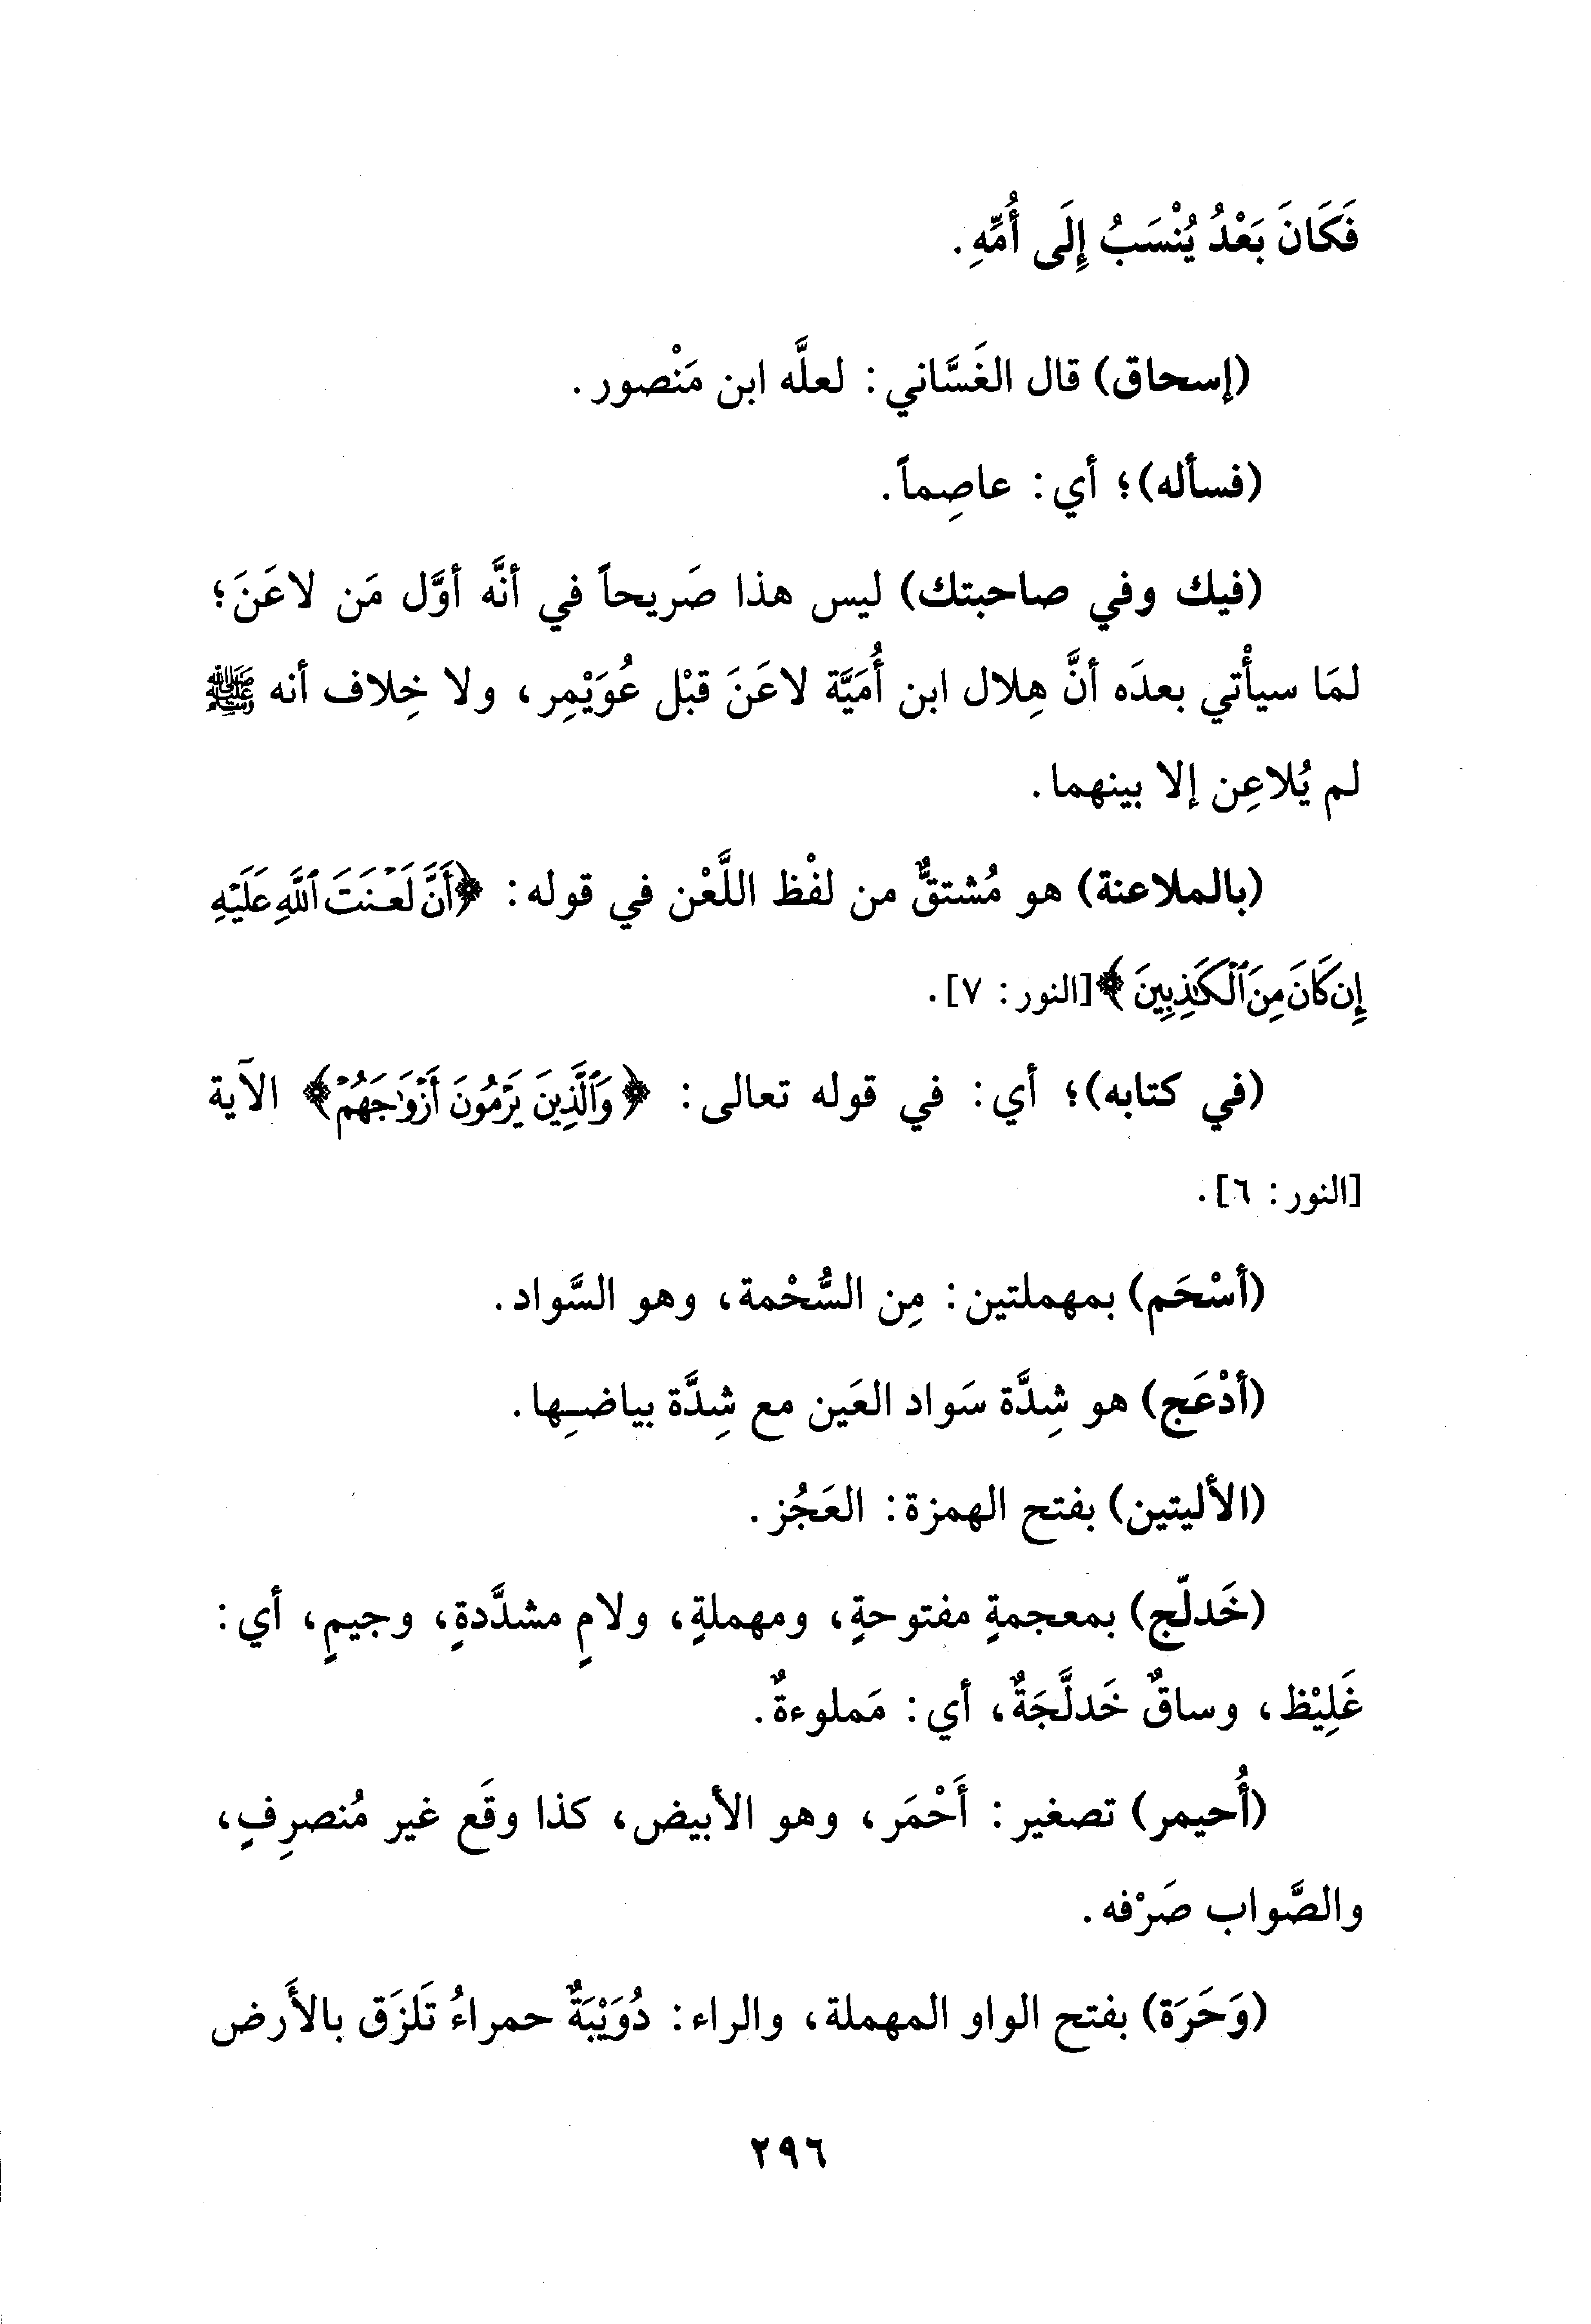 فَكَانَ بَعْدُ يُنْسَبُ إِلَى أُمِّهِ.
(إسحاق) قال الغَسَّاني: لعلَّه ابن مَنْصور.
(فسأله)؛ أي: عاصِماً.
(فيك وفي صاحبتك) ليس هذا صَريحاً في أنَّه أوَّل مَن لاعَنَ؛
لمَا سيأْتي بعدَه أنَّ هِلال ابن أُمَيَّة لاعَنَ قبْل عُوَيْمِر، ولا خِلاف أنه ﷺ
لم يُلاعِن إلا بينهما.
(بالملاعنة) هو مُشتقٌّ من لفْظ اللَّعْن في قوله: ﴿أَنَّ لَعْنَتَ ٱللَّهِ عَلَيْهِ
إِن كَانَ مِنَ ٱلْكَٰذِبِينَ﴾ [النور: ٧].
(في كتابه)؛ أي: في قوله تعالى: ﴿وَٱلَّذِينَ يَرْمُونَ أَزْوَٰجَهُمْ﴾ الآية
[النور: ٦].
(أسْحَم) بمهملتين: مِن السُّحْمة، وهو السَّواد.
(أدْعَج) هو شِدَّة سَواد العَين مع شِدَّة بياضِها.
(الأليتين) بفتح الهمزة: العَجُز.
(خَدلّج) بمعجمةٍ مفتوحةٍ، ومهملةٍ، ولامٍ مشدَّدةٍ، وجيمٍ، أي:
غَلِيْظ، وساقٌ خَدلَّجَةٌ، أي: مَملوءةٌ.
(أُحيمر) تصغير: أَحْمَر، وهو الأبيض، كذا وقَع غير مُنصرِفٍ،
والصَّواب صَرْفه.
(وَحَرَة) بفتح الواو المهملة، والراء: دُوَيْبَةٌ حمراءُ تَلزَق بالأَرض
٢٩٦